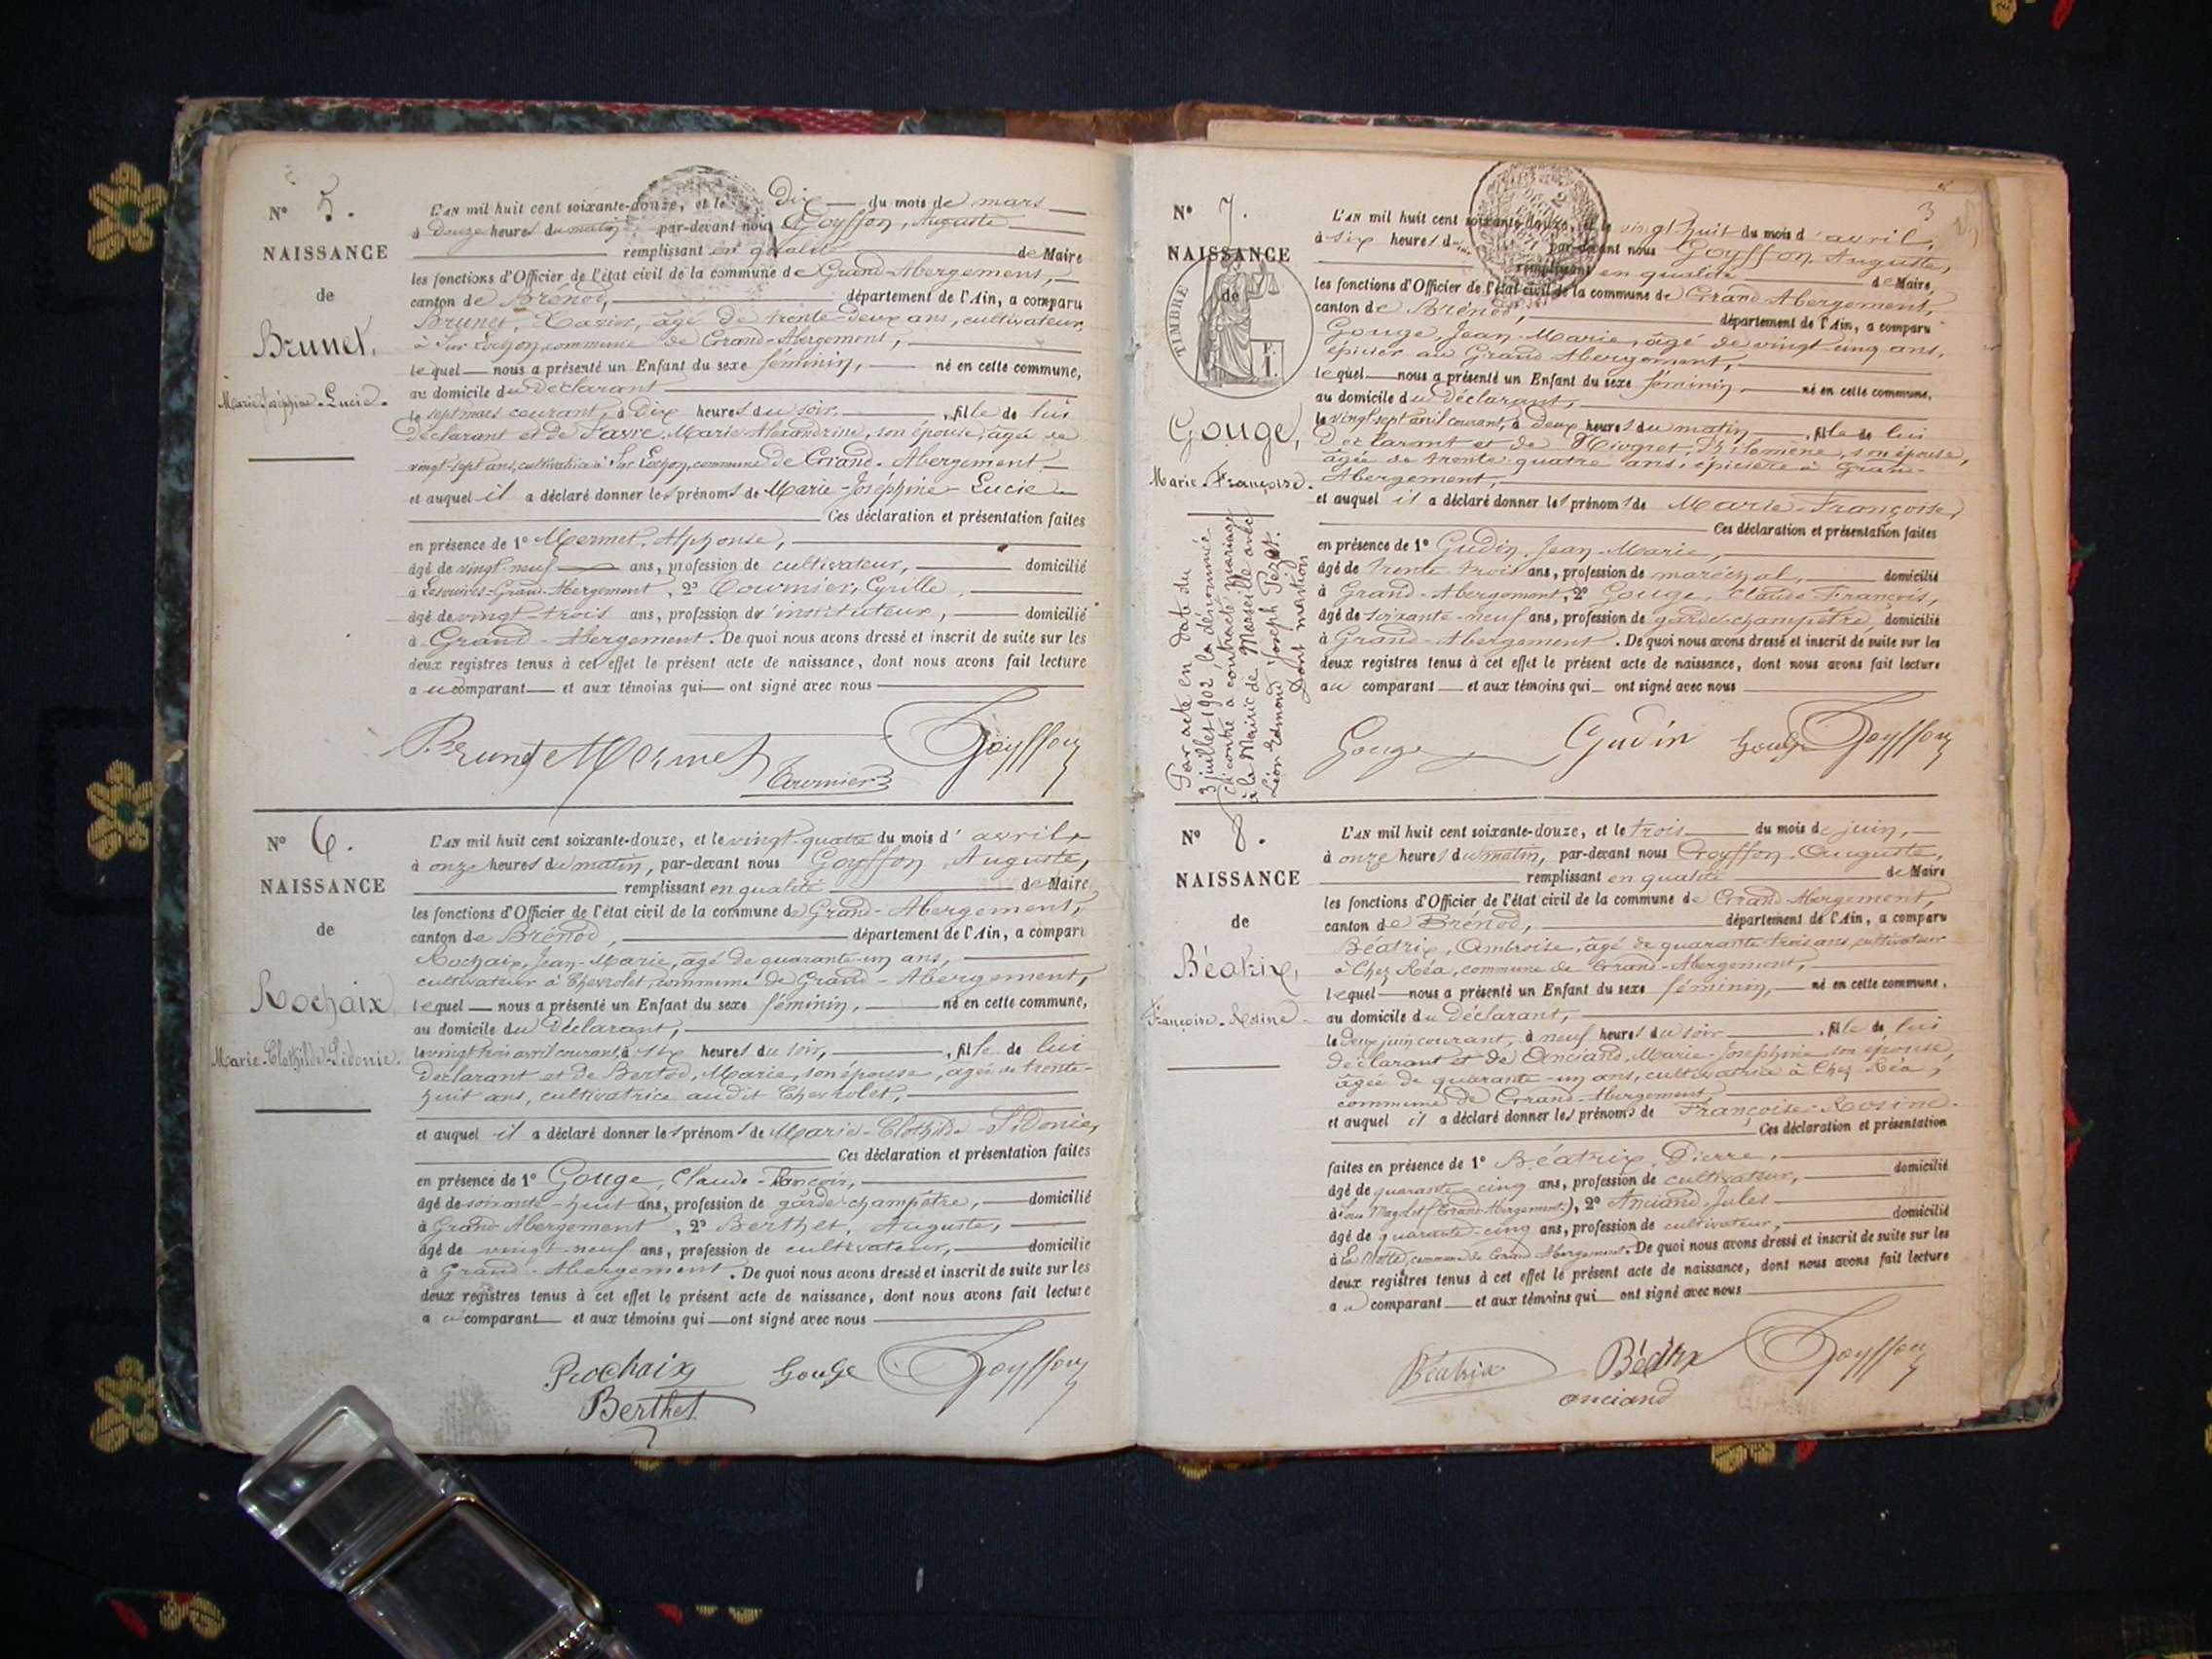 N° 5.
NAISSANCE
de
Brunet,
Marie-Joséphine-Lucie.
L'AN mil huit cent soixante-douze, et le Dix du mois de mars
à Douze heures du matin, par-devant nous Goyffon, Auguste
remplissant en qualité de Maire
les fonctions d'Officier de l'état civil de la commune de Grand-Abergement,
canton de Brénod, département de l'Ain, a comparu
Brunet, Xavier, âgé de trente-deux ans, cultivateur,
à Sur Lochon, commune de Grand-Abergement,
lequel nous a présenté un Enfant du sexe féminin, né en cette commune,
au domicile du déclarant
le sept mars courant, à Dix heures du soir, fille de lui
déclarant et de Favre, Marie-Alexandrine, son épouse, âgée de
vingt-sept ans, cultivatrice à Sur Lochon, commune de Grand-Abergement
et auquel il a déclaré donner les prénoms de Marie-Joséphine-Lucie
Ces déclaration et présentation faites
en présence de 1° Mermet, Alphonse,
âgé de vingt-neuf ans, profession de cultivateur, domicilié
à Grand-Abergement, 2° Tournier, Cyrille,
âgé de vingt-trois ans, profession d'instituteur, domicilié
à Grand-Abergement. De quoi nous avons dressé et inscrit de suite sur les
deux registres tenus à cet effet le présent acte de naissance, dont nous avons fait lecture
au comparant et aux témoins qui ont signé avec nous
Brunet Mermet Tournier Goyffon
N° 6.
NAISSANCE
de
Rochaix,
Marie-Clothilde-Sidonie.
L'AN mil huit cent soixante-douze, et le vingt-quatre du mois d'avril,
à onze heures du matin, par-devant nous Goyffon Auguste,
remplissant en qualité de Maire
les fonctions d'Officier de l'état civil de la commune de Grand-Abergement,
canton de Brénod, département de l'Ain, a comparu
Rochaix, Jean-Marie, âgé de quarante-un ans,
cultivateur à Chevrolet, commune de Grand-Abergement,
lequel nous a présenté un Enfant du sexe féminin, né en cette commune,
au domicile du déclarant,
le vingt-trois avril courant, à six heures du soir, fille de lui
déclarant et de Bertod, Marie, son épouse, âgée de trente-
huit ans, cultivatrice audit Chevrolet,
et auquel il a déclaré donner les prénoms de Marie-Clothilde-Sidonie,
Ces déclaration et présentation faites
en présence de 1° Gouge, Claude-François,
âgé de soixante-huit ans, profession de garde-champêtre, domicilié
à Grand-Abergement, 2° Berthet, Auguste,
âgé de vingt-neuf ans, profession de cultivateur, domicilié
à Grand-Abergement. De quoi nous avons dressé et inscrit de suite sur les
deux registres tenus à cet effet le présent acte de naissance, dont nous avons fait lecture
au comparant et aux témoins qui ont signé avec nous
Rochaix Gouge Goyffon
Berthet
3
N° 7.
NAISSANCE
de
TIMBRE
Gouge,
Marie-Françoise.
Par acte en date du
3 juillet 1902 la dénommée
ci-contre a contracté mariage
à la Mairie de Marseille avec
Léon Edmond Joseph Pezet.
Dont mention
L'AN mil huit cent soixante-douze, et le vingt-huit du mois d'avril,
à six heures du par-devant nous Goyffon Auguste,
remplissant en qualité de Maire,
les fonctions d'Officier de l'état civil de la commune de Grand-Abergement,
canton de Brénod, département de l'Ain, a comparu
Gouge, Jean-Marie, âgé de vingt-cinq ans,
épicier au Grand Abergement,
lequel nous a présenté un Enfant du sexe féminin, né en cette commune,
au domicile du déclarant,
le vingt-sept avril courant, à deux heures du matin, fille de lui
déclarant et de Philomène, son épouse,
âgée de trente-quatre ans, épicière à Grand-
Abergement,
et auquel il a déclaré donner les prénoms de Marie-Françoise,
Ces déclaration et présentation faites
en présence de 1° Gudin, Jean-Marie,
âgé de trente-trois ans, profession de maréchal, domicilié
à Grand-Abergement, 2° Gouge, Claude-François,
âgé de soixante-neuf ans, profession de garde-champêtre, domicilié
à Grand-Abergement. De quoi nous avons dressé et inscrit de suite sur les
deux registres tenus à cet effet le présent acte de naissance, dont nous avons fait lecture
au comparant et aux témoins qui ont signé avec nous
Gouge Gudin Gouge Goyffon
N° 8.
NAISSANCE
de
Béatrix,
Françoise-Rosine
L'AN mil huit cent soixante-douze, et le trois du mois de juin,
à onze heures du matin, par-devant nous Goyffon, Auguste,
remplissant en qualité de Maire
les fonctions d'Officier de l'état civil de la commune de Grand-Abergement,
canton de Brénod, département de l'Ain, a comparu
Béatrix, Ambroise, âgé de quarante-trois ans, cultivateur
à Chez Réa, commune de Grand-Abergement,
lequel nous a présenté un Enfant du sexe féminin, né en cette commune,
au domicile du déclarant,
le deux juin courant, à neuf heures du soir, fille de lui
déclarant et de Anciand, Marie-Joséphine son épouse,
âgée de quarante-un ans, cultivatrice à Chez Réa,
commune de Grand-Abergement,
et auquel il a déclaré donner les prénoms de Françoise-Rosine.
Ces déclaration et présentation
faites en présence de 1° Béatrix, Pierre,
âgé de quarante-cinq ans, profession de cultivateur, domicilié
à (Grand-Abergement), 2° Anciand, Jules
âgé de quarante-cinq ans, profession de cultivateur, domicilié
à La Motte, commune de Grand-Abergement. De quoi nous avons dressé et inscrit de suite sur les
deux registres tenus à cet effet le présent acte de naissance, dont nous avons fait lecture
au comparant et aux témoins qui ont signé avec nous
Béatrix Béatrix Goyffon
anciand